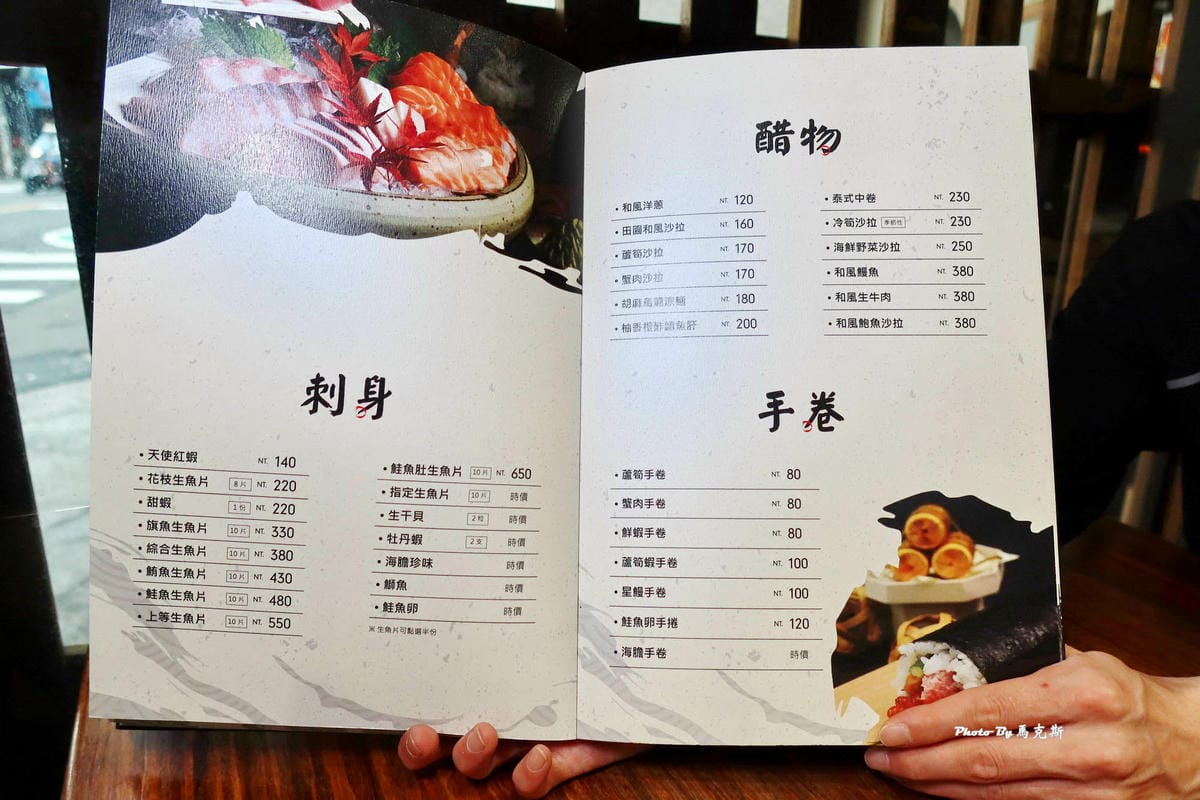 刺身
• 天使紅蝦 NT. 140
• 花枝生魚片 8片 NT. 220
• 甜蝦 1份 NT. 220
• 旗魚生魚片 10片 NT. 330
• 綜合生魚片 10片 NT. 380
• 鮪魚生魚片 10片 NT. 430
• 鮭魚生魚片 10片 NT. 480
• 上等生魚片 10片 NT. 550
• 鮭魚肚生魚片 10片 NT. 650
• 指定生魚片 10片 時價
• 生干貝 2粒 時價
• 牡丹蝦 2支 時價
• 海膽珍味 時價
• 鰤魚 時價
• 鮭魚卵 時價
※ 生魚片可點選半份
醋物
• 和風洋蔥 NT. 120
• 田園和風沙拉 NT. 160
• 蘆筍沙拉 NT. 170
• 蟹肉沙拉 NT. 170
• 胡麻烏龍涼麵 NT. 180
• 柚香 NT. 200
• 泰式中卷 NT. 230
• 冷筍沙拉 季節性 NT. 230
• 海鮮野菜沙拉 NT. 250
• 和風鰻魚 NT. 380
• 和風生牛肉 NT. 380
• 和風鮑魚沙拉 NT. 380
手卷
• 蘆筍手卷 NT. 80
• 蟹肉手卷 NT. 80
• 鮮蝦手卷 NT. 80
• 蘆筍蝦手卷 NT. 100
• 星鰻手卷 NT. 100
• 鮭魚卵手捲 NT. 120
• 海膽手卷 時價
Photo By 馬克斯